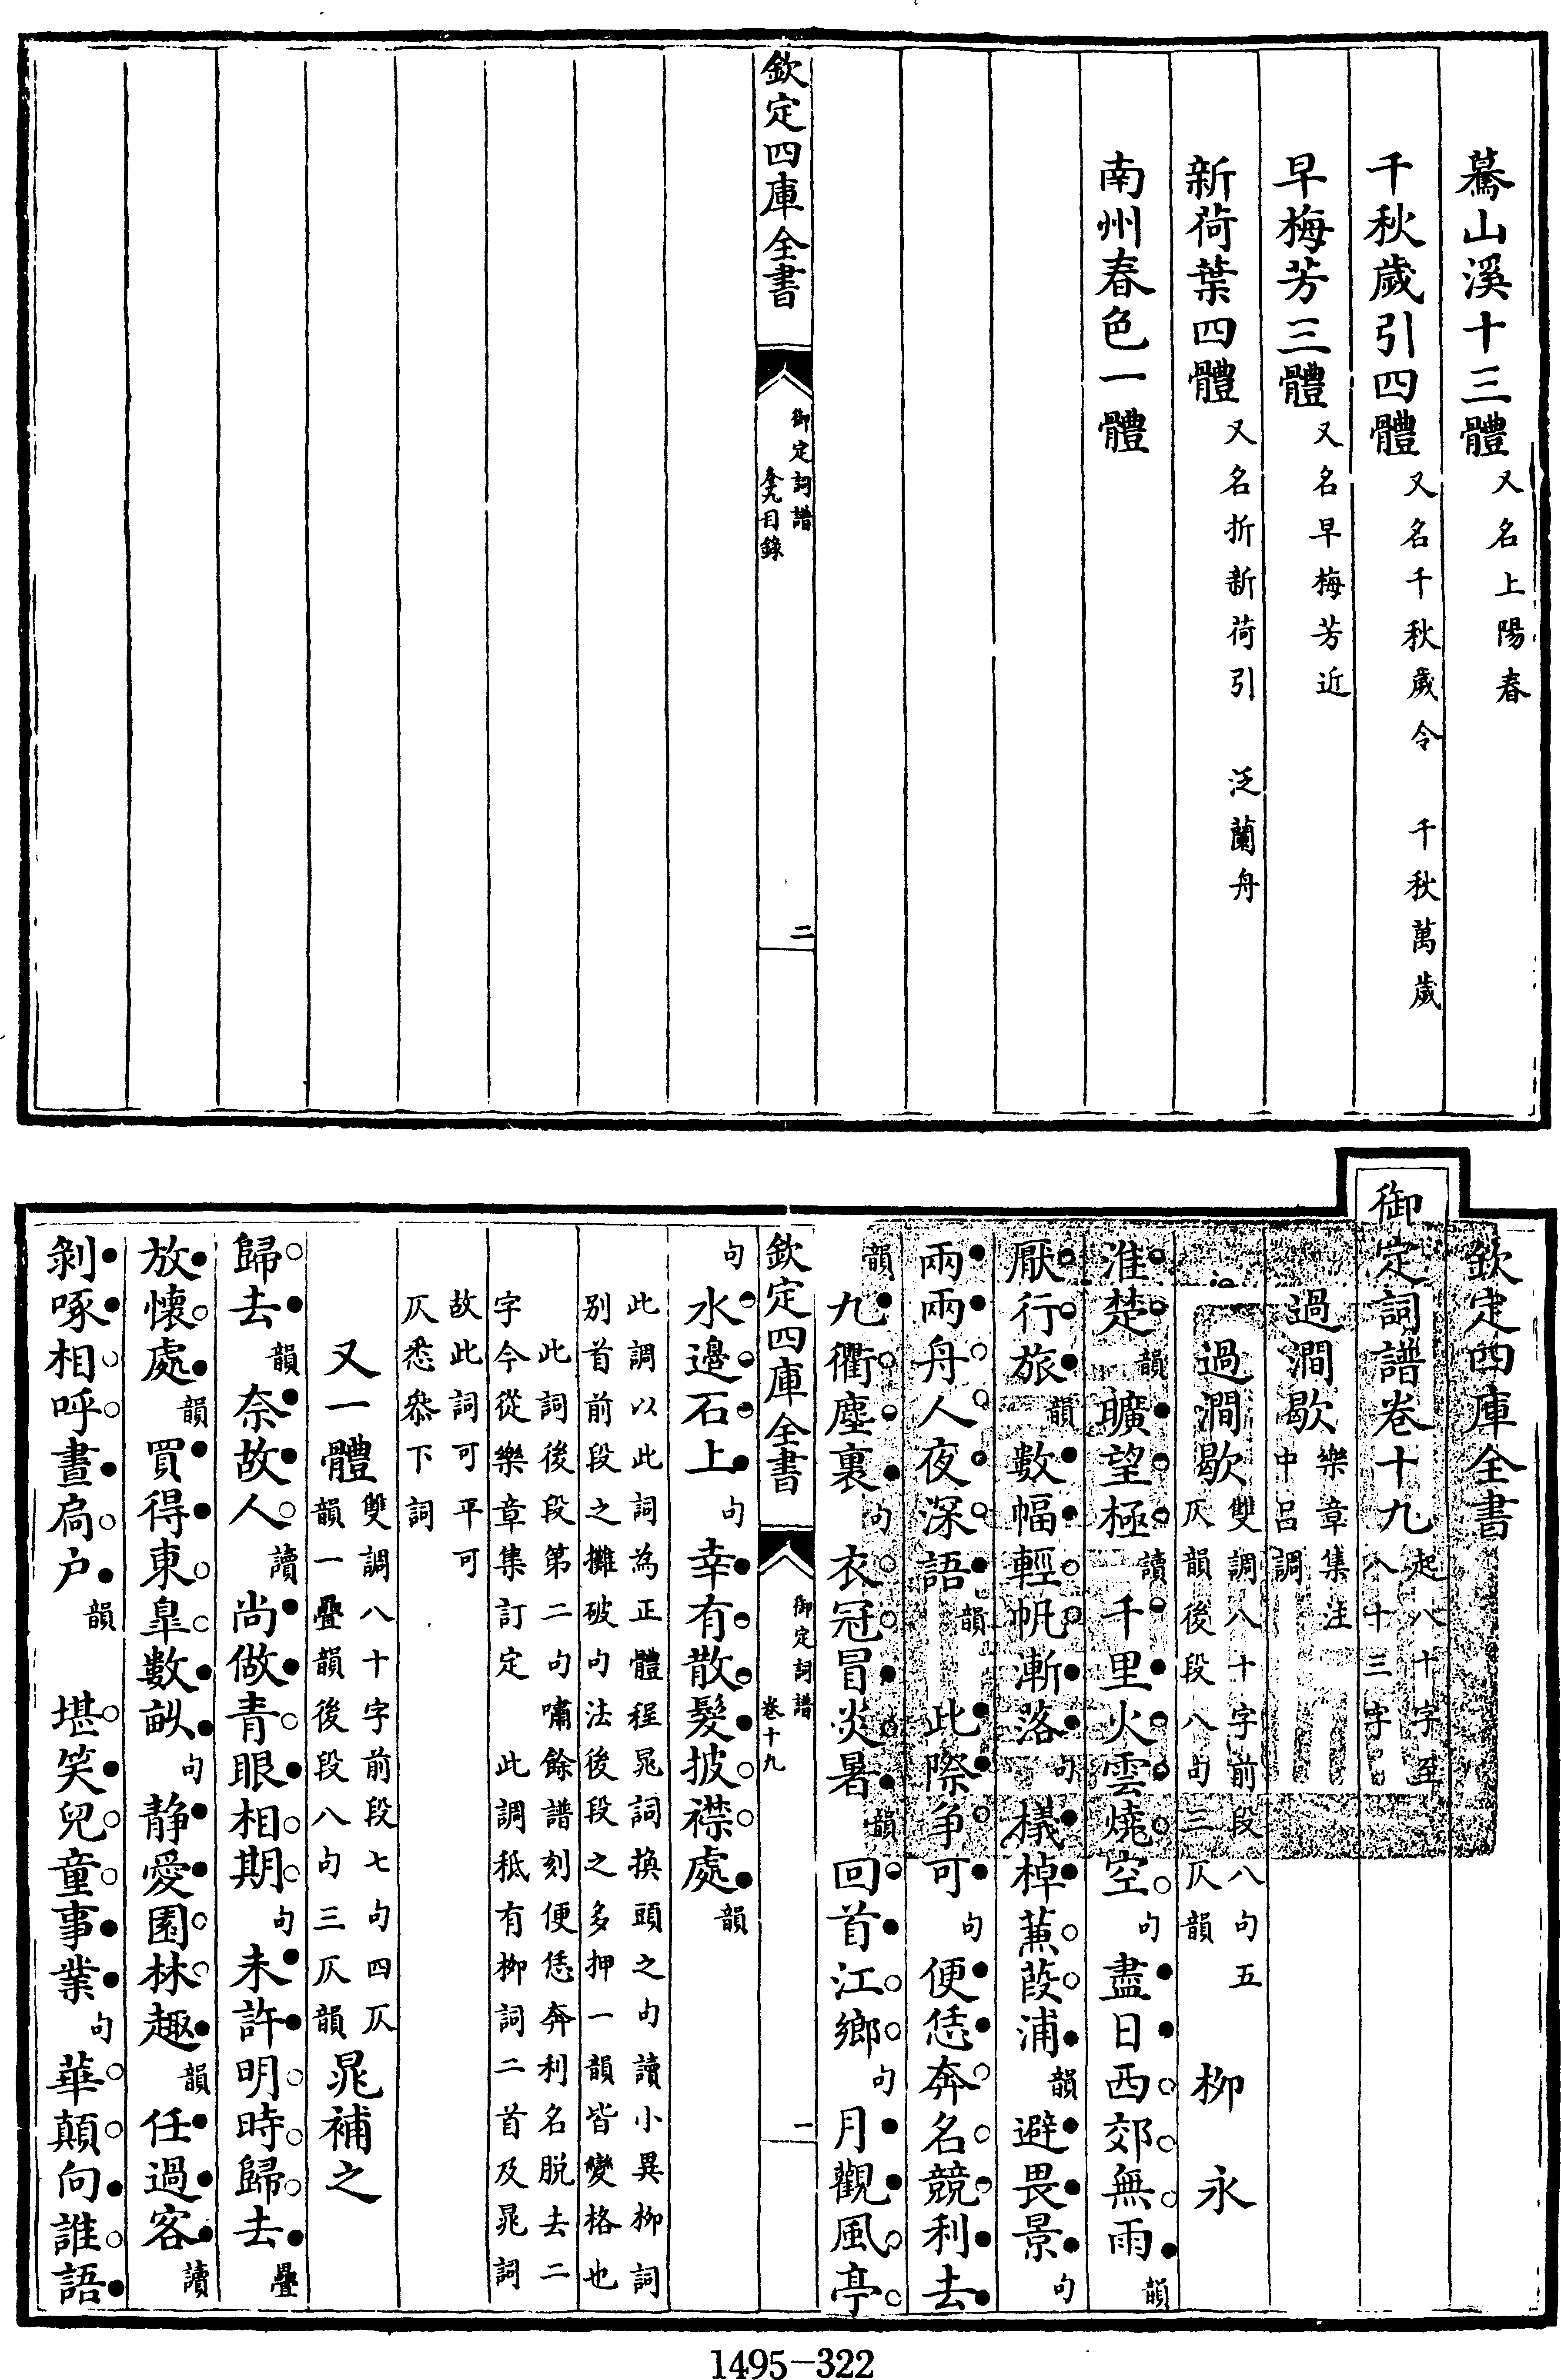 驀山溪十三體又名上陽春
千秋歲引四體又名千秋歲令 千秋萬歲
早梅芳三體又名早梅芳近
新荷葉四體又名折新荷引 泛蘭舟
南州春色一體
欽定四庫全書
御定詞譜
卷九目錄
二
欽定四庫全書
御定詞譜卷十九起八十字至
八十三字
過澗歇樂章集注
中呂調
過澗歇雙調八十字前段八句五
仄韻後段八句三仄韻 柳永
淮楚韻曠望極讀千里火雲燒空句盡日西郊無雨韻
厭行旅韻數幅輕帆漸落句檥棹蒹葭浦韻避畏景句
兩兩舟人夜深語韻 此際爭可句便恁奔名競利去
韻九衢塵裏句衣冠冒炎暑韻回首江鄉句月觀風亭
欽定四庫全書
御定詞譜
卷十九
一
句水邊石上句幸有散髮披襟處韻
此調以此詞為正體程晁詞換頭之句讀小異柳詞
别首前段之攤破句法後段之多押一韻皆變格也
此詞後段第二句嘯餘譜刻便恁奔利名脱去二
字今從樂章集訂定 此調秪有柳詞二首及晁詞
故此詞可平可
仄悉叅下詞
又一體雙調八十字前段七句四仄
韻一疊韻後段八句三仄韻晁補之
歸去韻奈故人讀尚做青眼相期句未許明時歸去疊
放懷處韻買得東臯數畝句静愛園林趣韻任過客讀
剝啄相呼晝扃户韻 堪笑兒童事業句華顛向誰語
1495-322